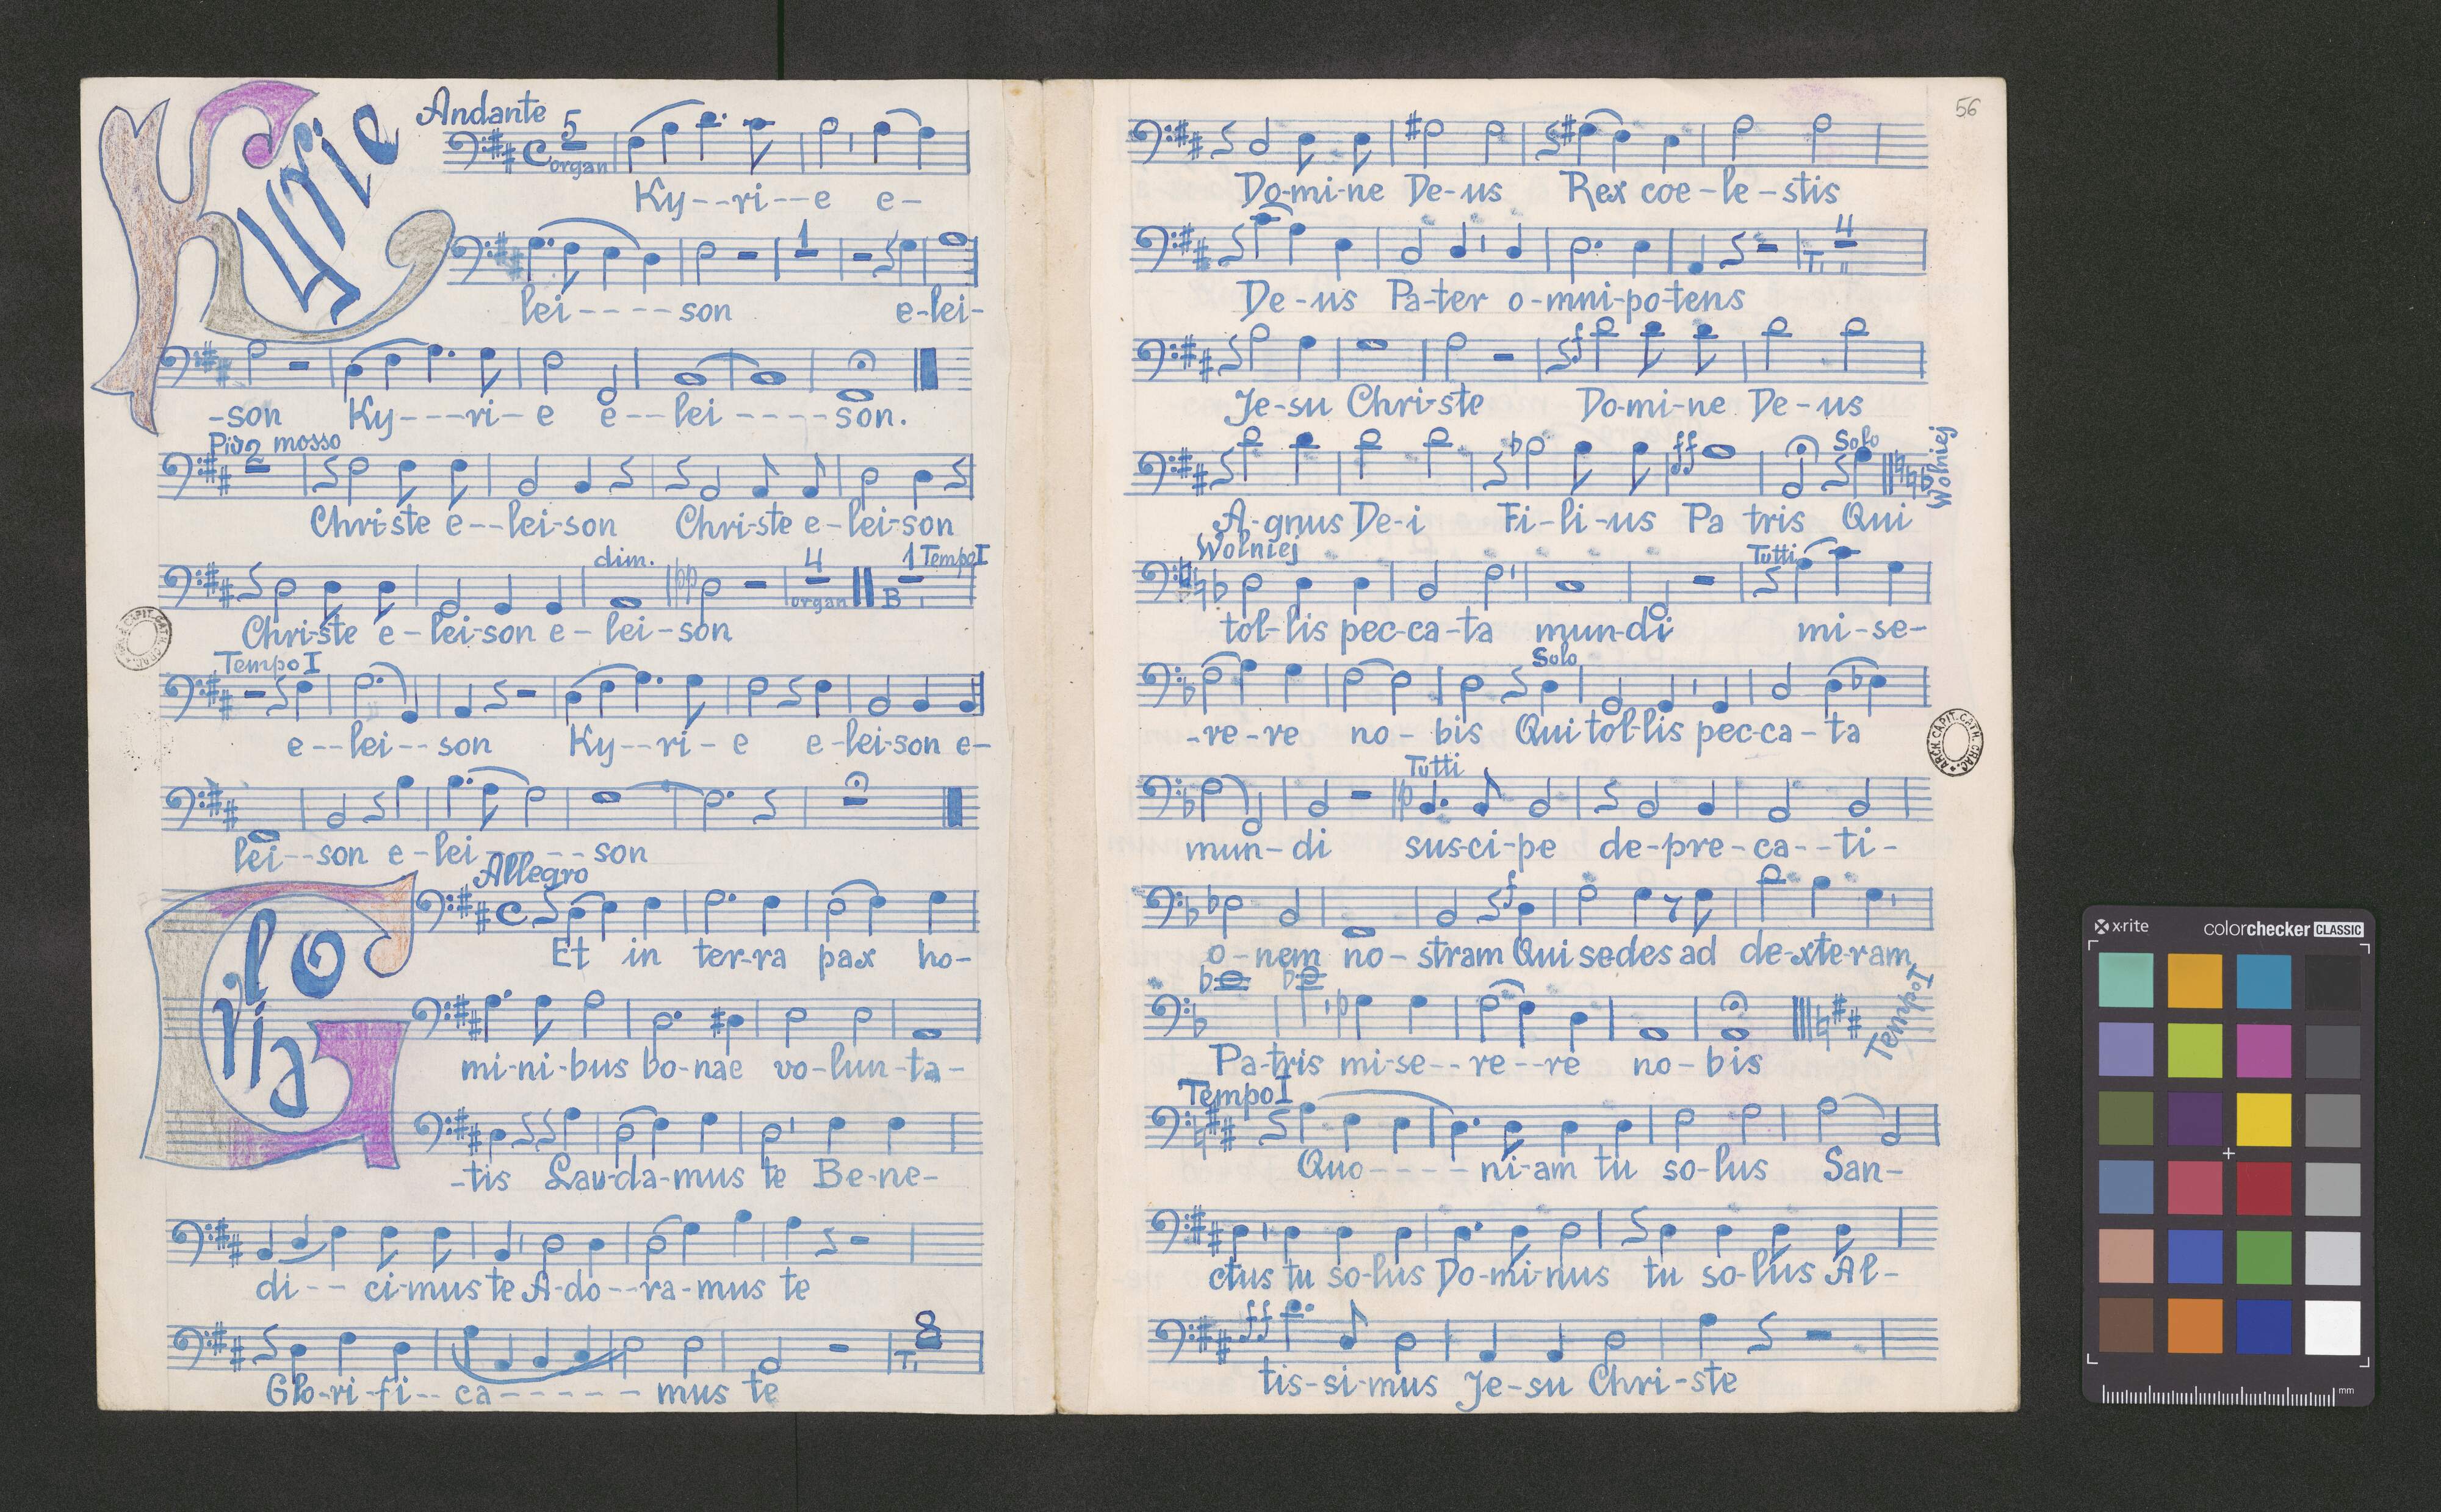 Kyrie
Andante
5
organ
Ky--ri--e e-
1
lei----son e-lei-
-son Ky---ri-e e--lei----son.
Più mosso
2
Chri-ste e--lei-son Chri-ste e-lei-son
dim. pp 4 1 Tempo I
organ B
Chri-ste e-lei-son e-lei-son
Tempo I
e--lei--son Ky--ri-e e-lei-son e-
lei--son e-lei----son
Gloria
Allegro
Et in ter-ra pax ho-
mi-ni-bus bo-nae vo-lun-ta-
-tis Lau-da-mus te Be-ne-
di-- ci-mus te A-do--ra-mus te
8
T.
Glo-ri-fi-- ca------mus te
56
Do-mi-ne De-us Rex coe-le-stis
4
T.
De-us Pa-ter o-mni-po-tens
f
Je-su Chri-ste Do-mi-ne De-us
ff Solo Wolniej
A-gnus De-i Fi-li-us Pa tris Qui
Wolniej Tutti
tol-lis pec-ca-ta mun-di mi-se-
Solo
-re-re no-bis Qui tol-lis pec-ca-ta
Tutti
p
mun-di sus-ci-pe de-pre-ca--ti-
f
o-nem no-stram Qui se-des ad de-xte-ram
Tempo I
Pa-tris mi-se--re--re no-bis
Tempo I
Quo----ni-am tu so-lus San-
ctus tu so-lus Do-mi-nus tu so-lus Al-
ff
tis-si-mus Je-su Chri-ste
ARCH. CAPIT. CATH. CRAC.
x-rite colorchecker CLASSIC
mm